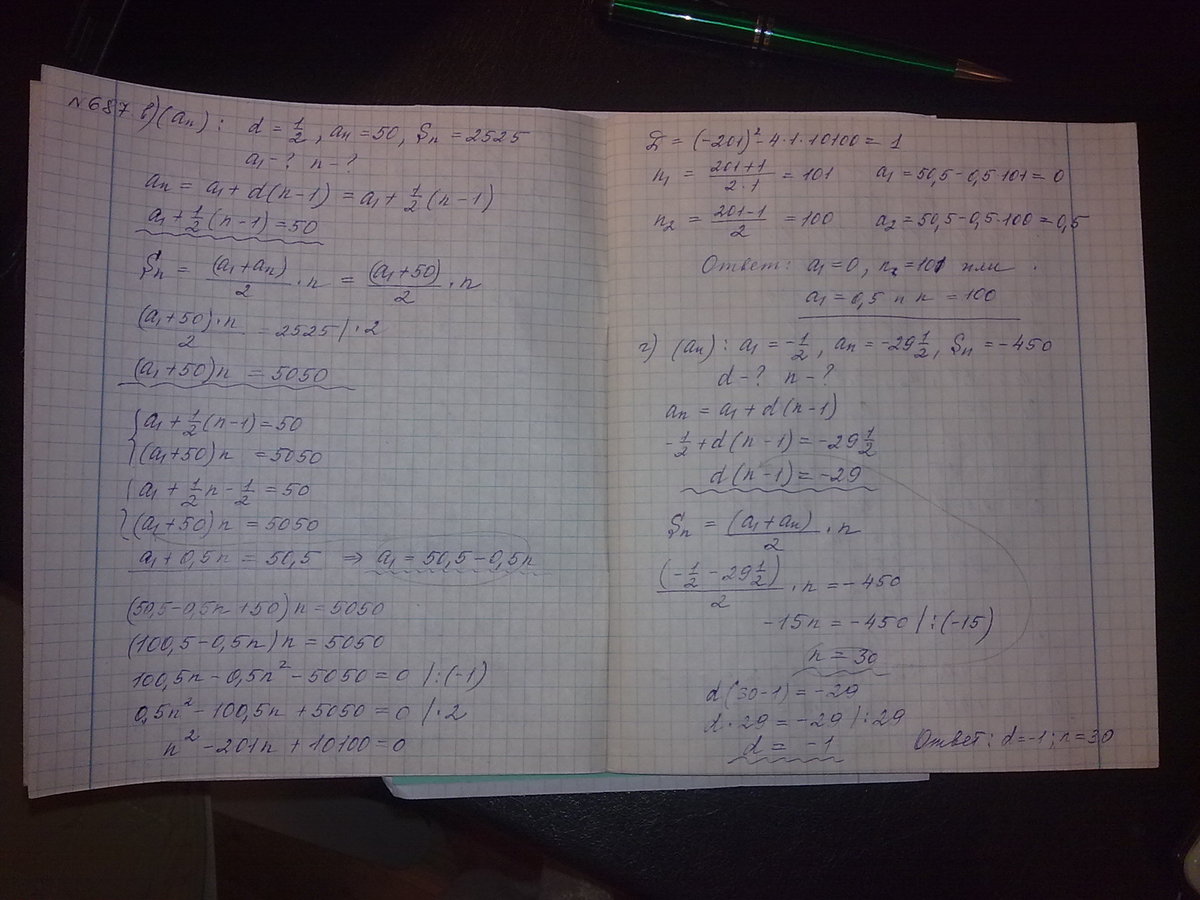 №687 в) (an): d = 1/2, an = 50, Sn = 2525
a1 - ? n - ?
an = a1 + d(n-1) = a1 + 1/2(n-1)
a1 + 1/2(n-1) = 50
Sn = (a1+an)/2 · n = (a1+50)/2 · n
(a1+50)·n/2 = 2525 |·2
(a1+50)n = 5050
{a1 + 1/2(n-1) = 50
(a1+50)n = 5050
{a1 + 1/2n - 1/2 = 50
(a1+50)n = 5050
a1 + 0,5n = 50,5 ⇒ a1 = 50,5 - 0,5n
(50,5 - 0,5n + 50)n = 5050
(100,5 - 0,5n)n = 5050
100,5n - 0,5n² - 5050 = 0 |:(-1)
0,5n² - 100,5n + 5050 = 0 |·2
n² - 201n + 10100 = 0
D = (-201)² - 4·1·10100 = 1
n1 = (201+1)/(2·1) = 101 a1 = 50,5 - 0,5·101 = 0
n2 = (201-1)/2 = 100 a2 = 50,5 - 0,5·100 = 0,5
Ответ: a1 = 0, n = 101 или
a1 = 0,5 и n = 100
г) (an): a1 = -1/2, an = -29 1/2, Sn = -450
d - ? n - ?
an = a1 + d(n-1)
-1/2 + d(n-1) = -29 1/2
d(n-1) = -29
Sn = (a1+an)/2 · n
(-1/2 - 29 1/2)/2 · n = -450
-15n = -450 |:(-15)
n = 30
d(30-1) = -29
d·29 = -29 |:29
d = -1
Ответ: d = -1; n = 30